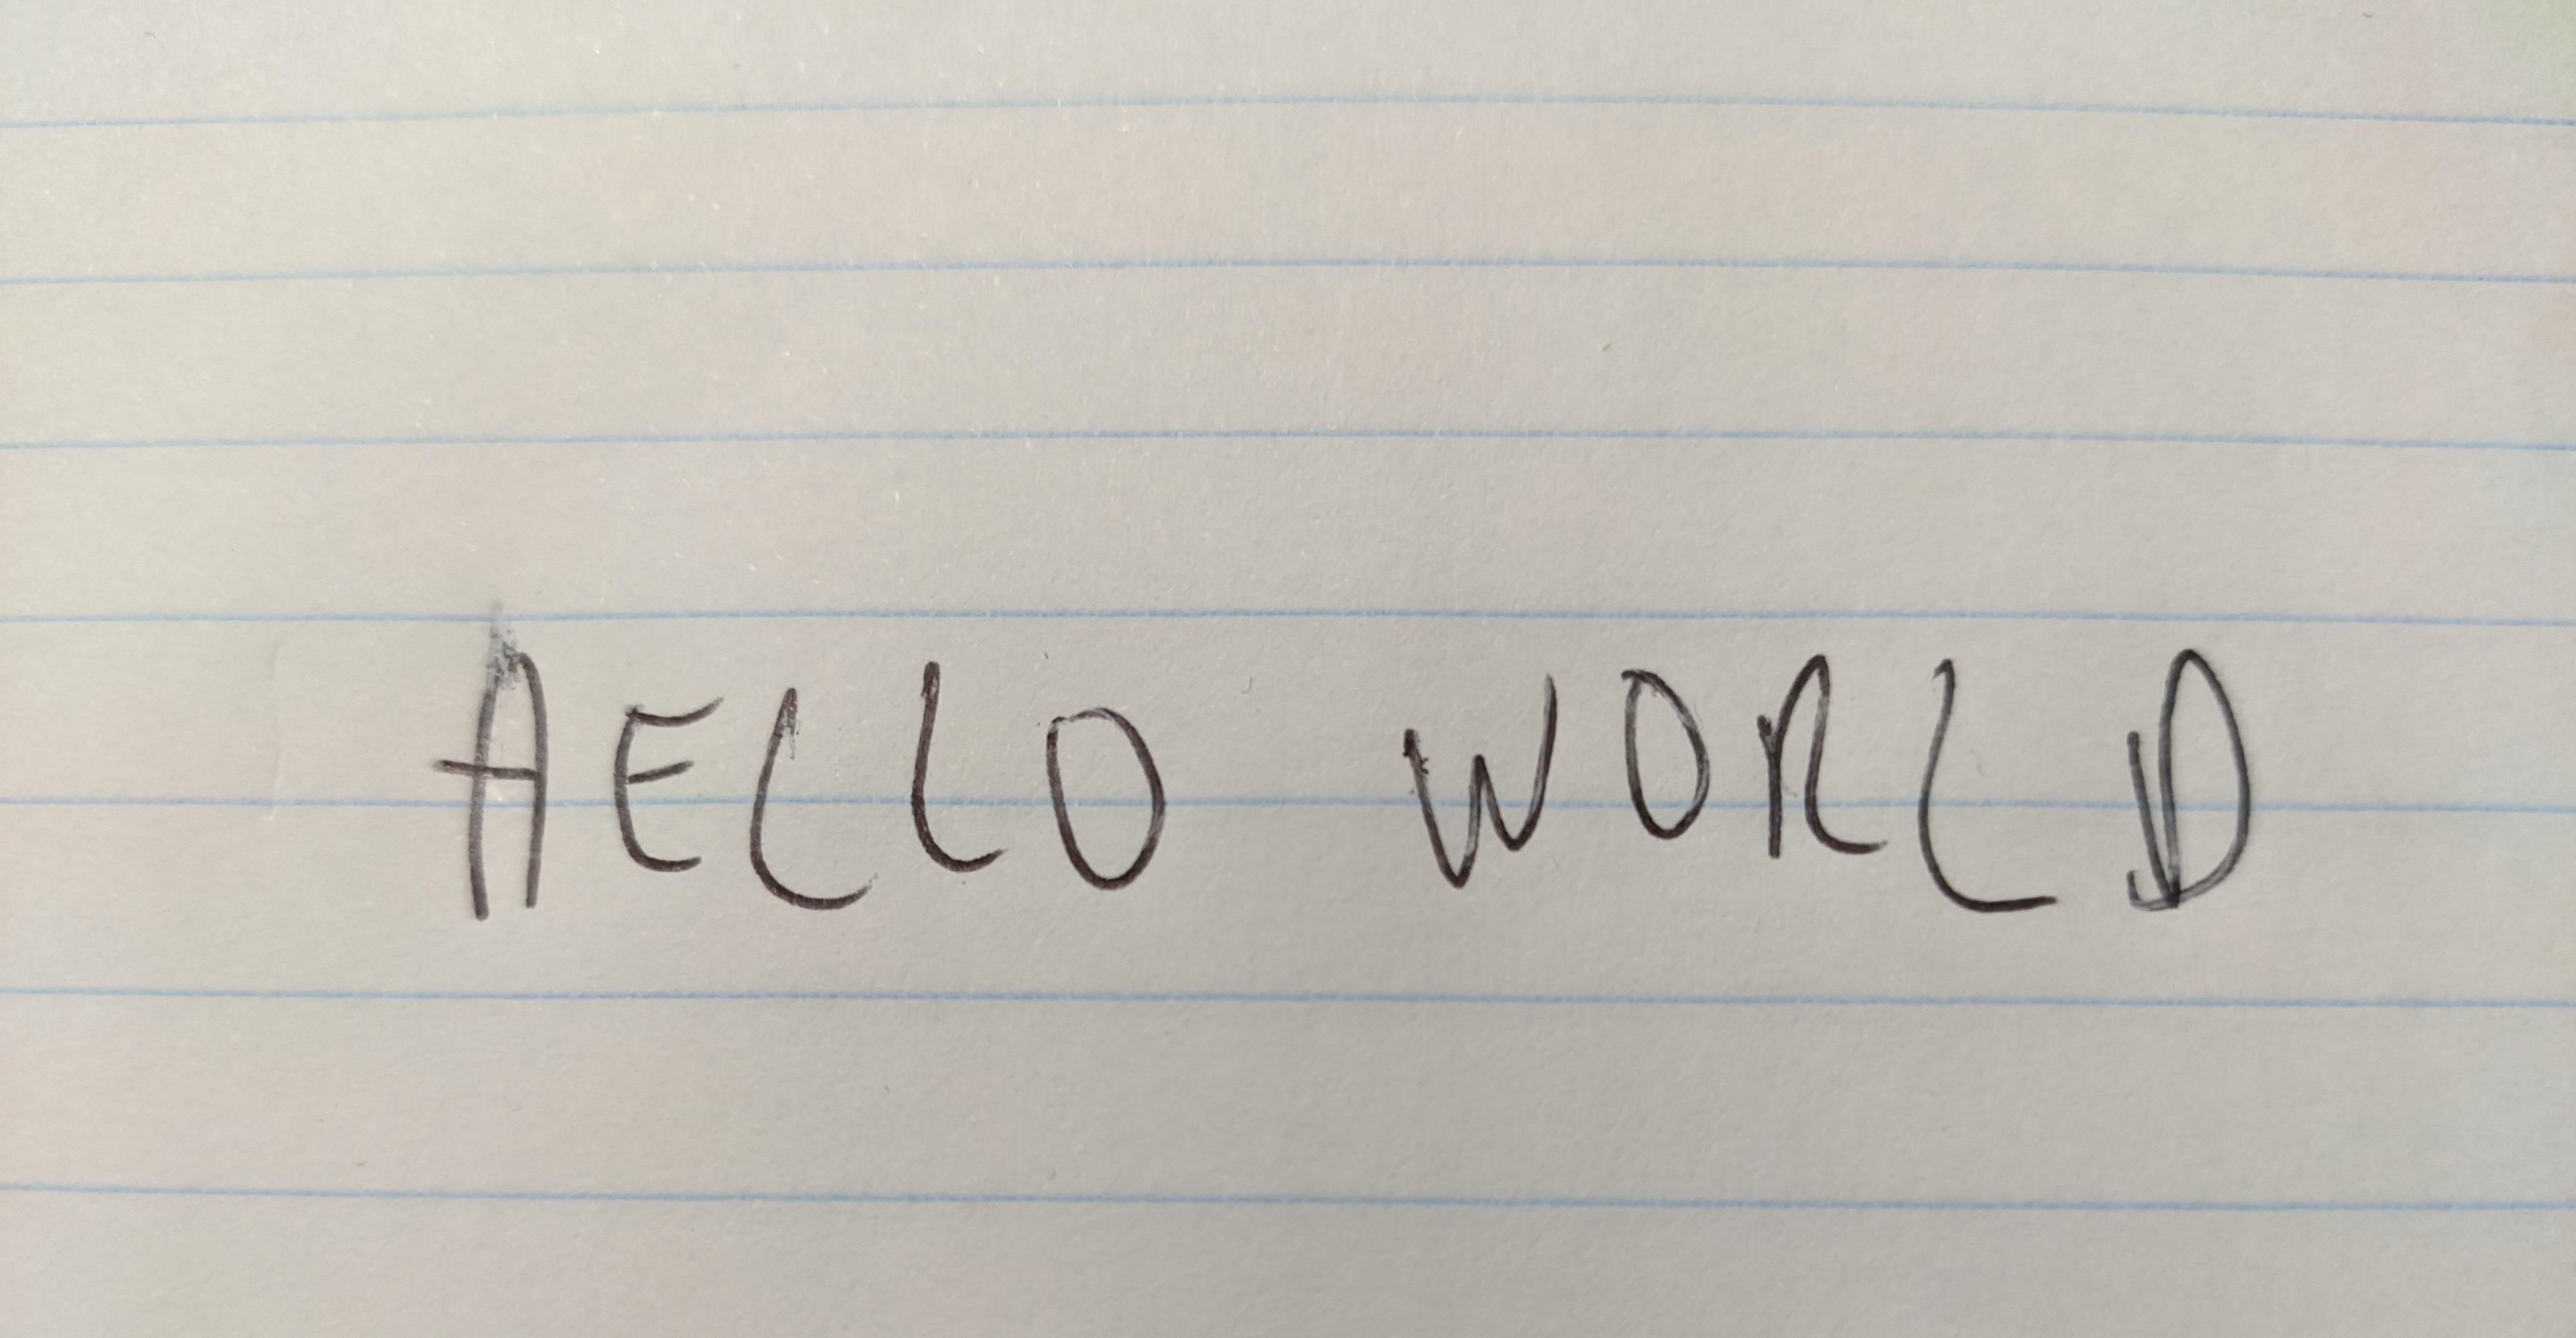 AELLO WORLD